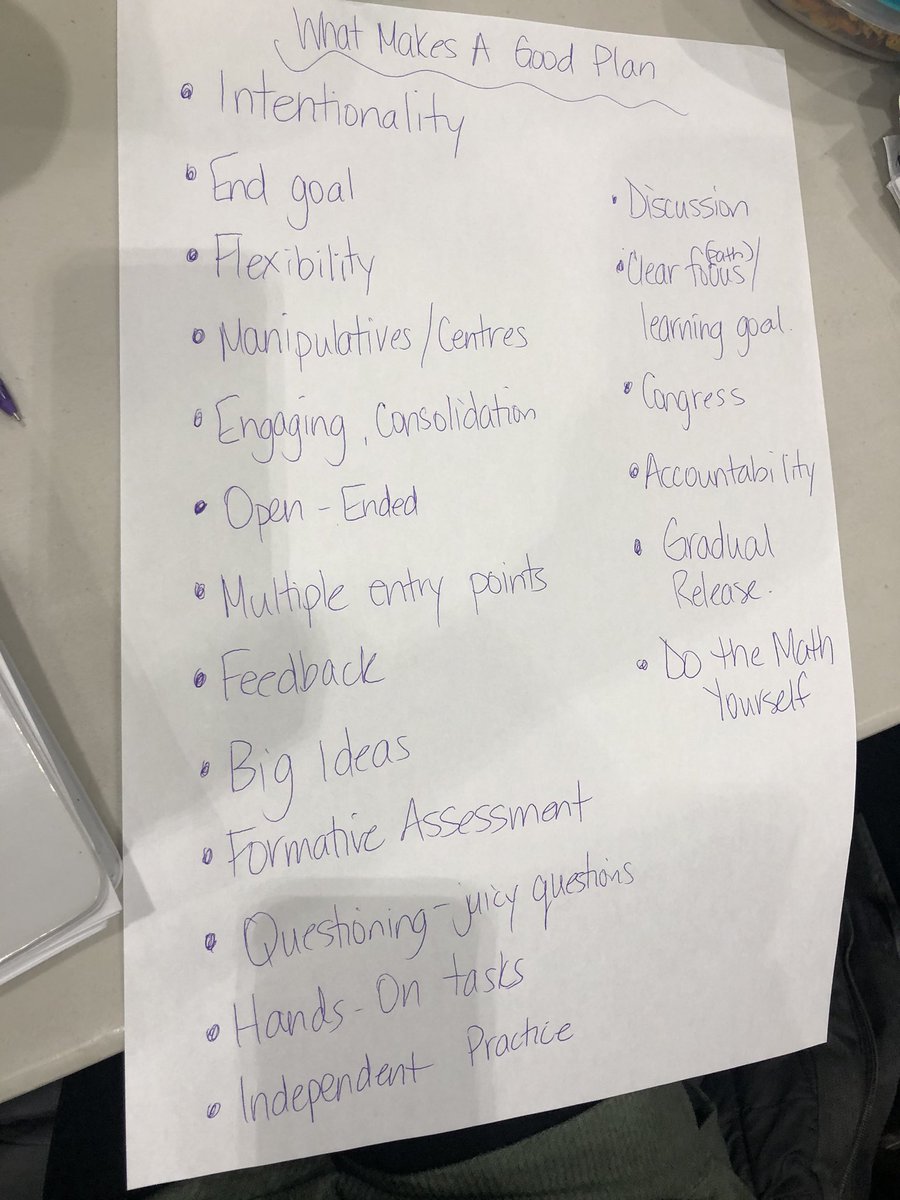 What Makes A Good Plan
• Intentionality
• End goal
• Flexibility
• Manipulatives/Centres
• Engaging, Consolidation
• Open-Ended
• Multiple entry points
• Feedback
• Big Ideas
• Formative Assessment
• Questioning-juicy questions
• Hands-On tasks
• Independent Practice
• Discussion
• Clear focus/
learning goal.
• Congress
• Accountability
• Gradual
Release.
• Do the Math
Yourself